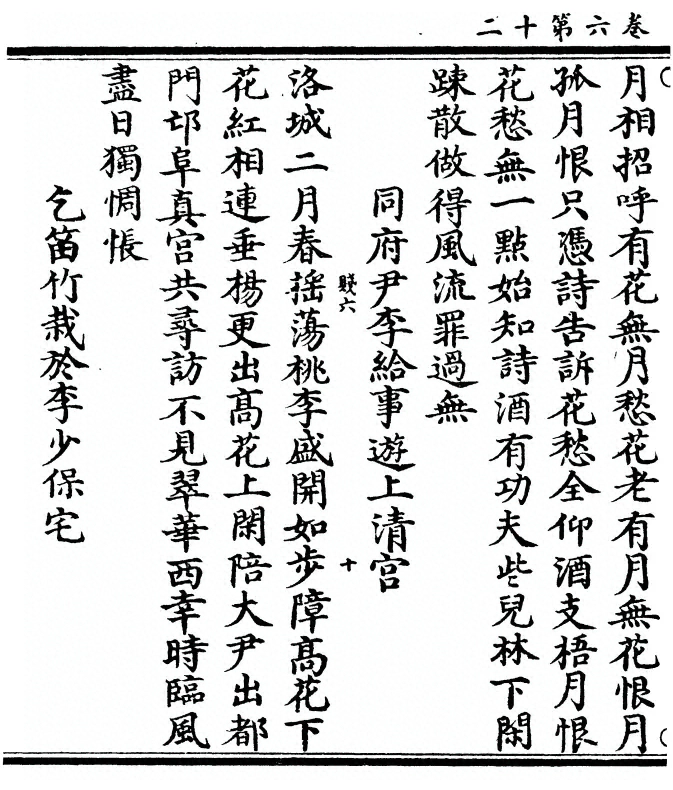 卷六第十二
月相招呼有花無月愁花老有月無花恨月
孤月恨只憑詩告訴花愁全仰酒支梧月恨
花愁無一點始知詩酒有功夫些兒林下閑
踈散做得風流罪過無
同府尹李給事遊上清宮
賤六
十
洛城二月春揺蕩桃李盛開如步障髙花下
花紅相連垂楊更出髙花上閑陪大尹出都
門邙阜真宮共尋訪不見翠華西幸時臨風
盡日獨惆悵
乞笛竹栽於李少保宅